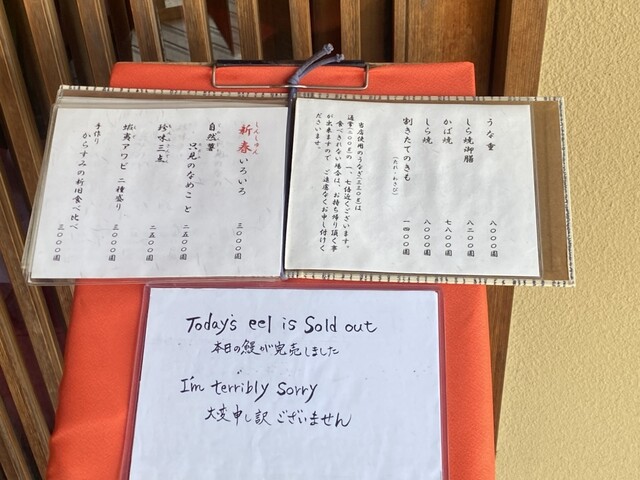 うな重 八〇〇〇円
しら焼御膳 八二〇〇円
かば焼 七八〇〇円
しら焼 八〇〇〇円
割きたてのきも 一四〇〇円
(たれ・わさび)
食べきれない場合は、お持ち帰り頂く事
が出来ますので ご遠慮なくお申し付けく
ださいませ。
しんしゅん
新春いろいろ 三〇〇〇円
自然薯
只見のなめこ と 二五〇〇円
珍味三点 二五〇〇円
アワビ 二種盛り 三〇〇〇円
手作り
からすみの新旧食べ比べ 三〇〇〇円
Today's eel is Sold out
本日の鰻が完売しました
I'm terribly sorry
大変申し訳ございません